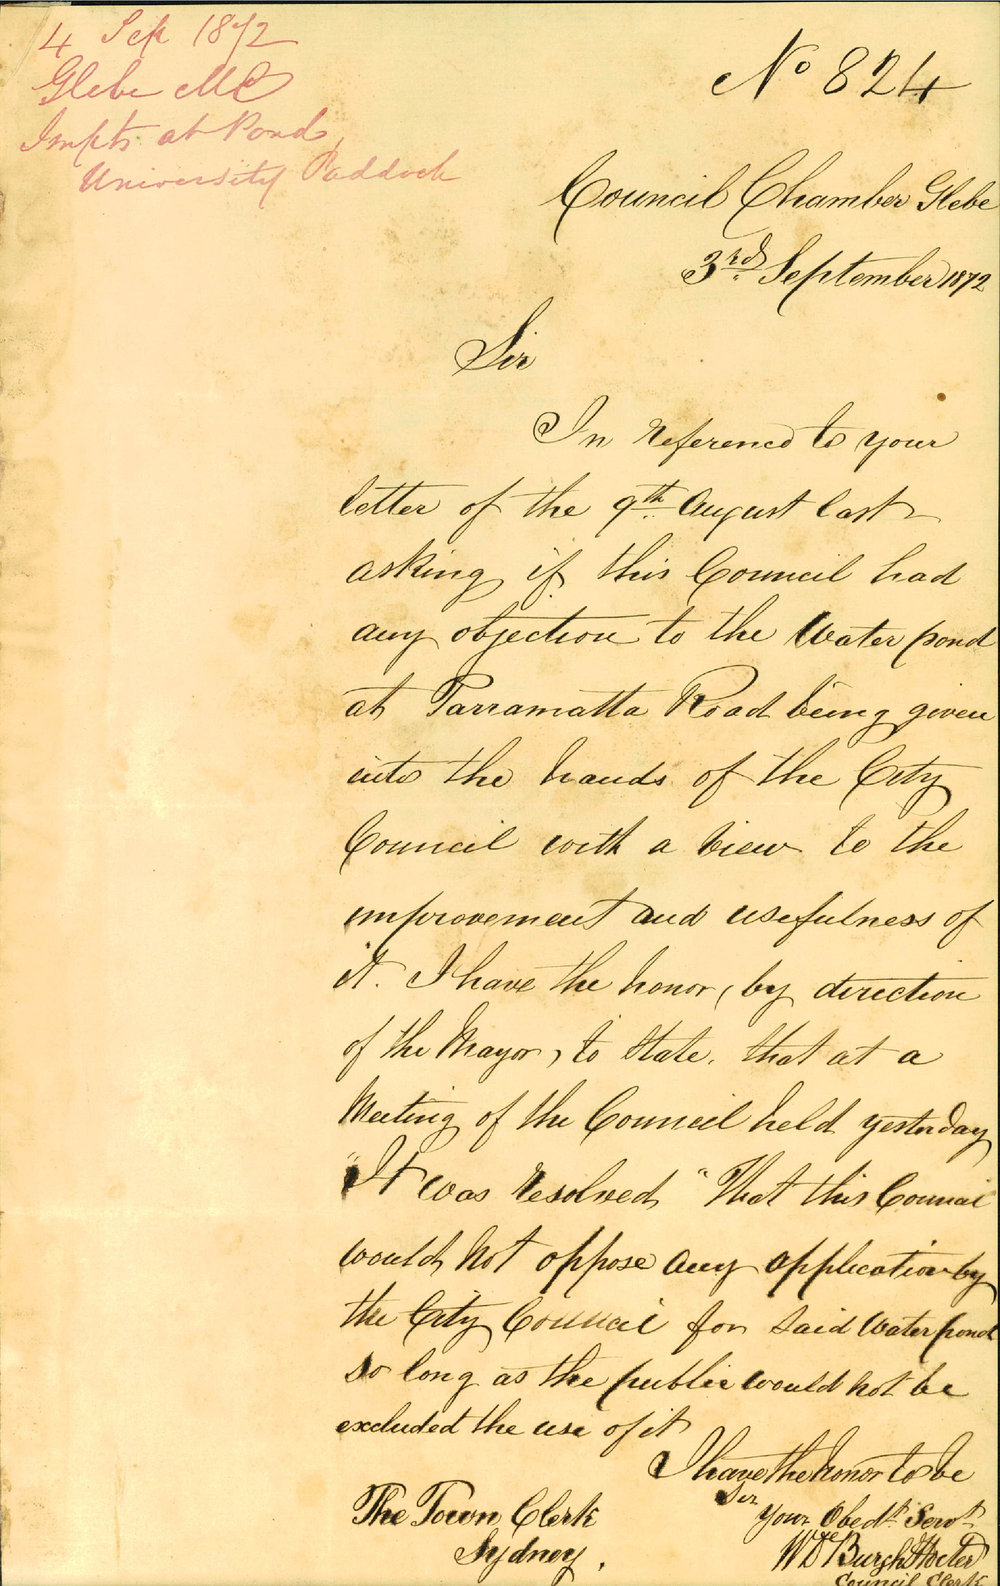 4 Sep 1872
Glebe MC
Impts at Pond,
University Paddock
No 824
Council Chamber Glebe
3rd September 1872
Sir
In reference to your
letter of the 9th August last
asking if this Council had
any objection to the Water pond
at Parramatta Road being given
into the hands of the City
Council with a view to the
improvement and usefulness of
it. I have the honor, by direction
of the Mayor, to state, that at a
Meeting of the Council held yesterday
"It was resolved "That this Council
would not oppose any application by
the City Council for said Water pond
so long as the public would not be
excluded the use of it
I have the honor to be
Sir
Your Obedt Servt
The Town Clerk
Sydney.
W De Burgh
Council Clerk